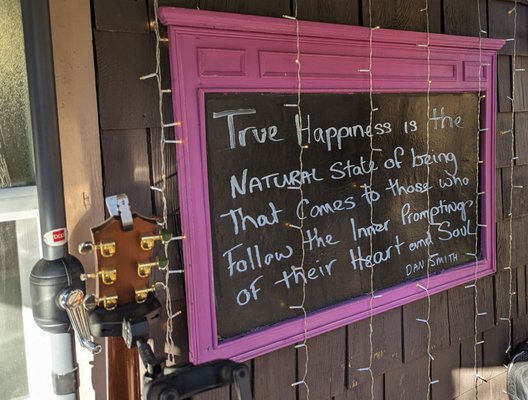 True Happiness is the
Natural State of being
That Comes to those who
Follow the Inner Promptings
of their Heart and Soul
DAN SMITH